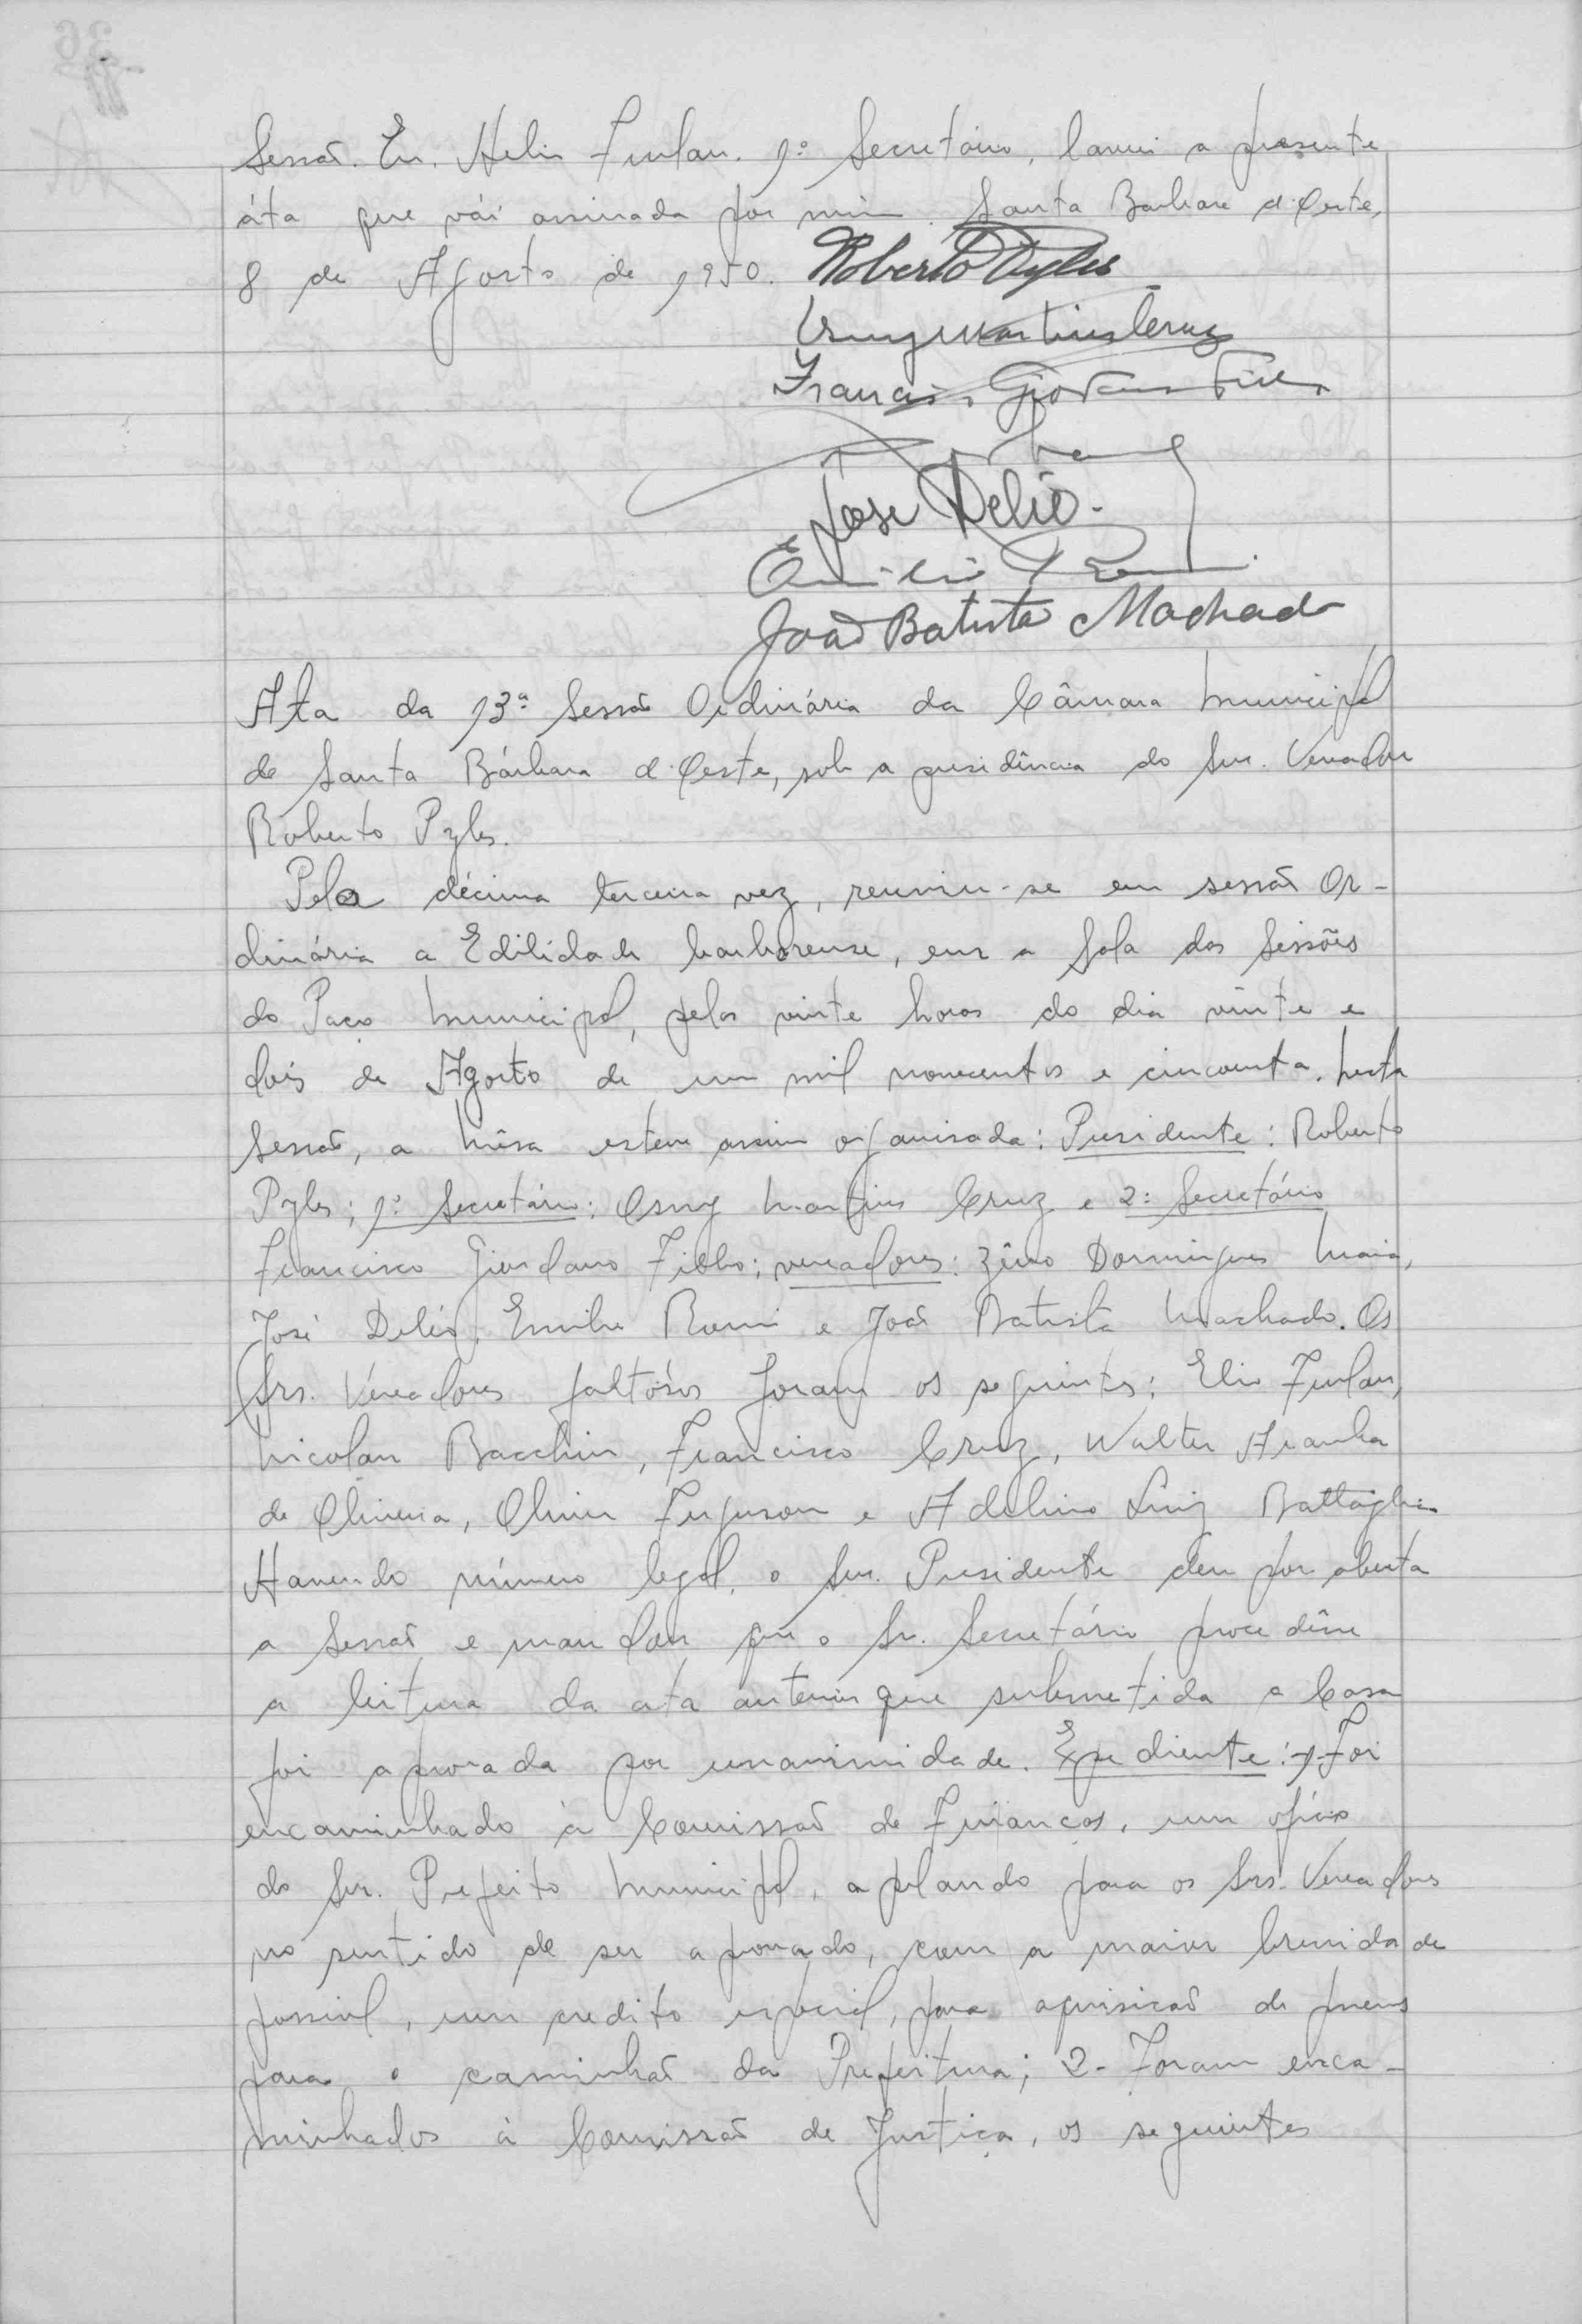 Sessão. Eu, Helio Furlan. 1º Secretário, lavrei a presente
áta que vái assinada por mim. Santa Barbara d'Oeste,
8 de Agosto de 1950. Roberto Pyles
Osny Martins Cruz
Francisco Giordano Filho
José Delio.
Emilio Romi
João Batista Machado
Ata da 13ª Sessão Ordinária da Câmara Municipal
de Santa Bárbara d'Oeste, sob a presidência do Snr. Vereador
Roberto Pyles.
Pela décima terceira vez, reuniu-se em sessão Or-
dinária a Edilidade barbarense, em a Sala das Sessões
do Paço Municipal, pelas vinte horas do dia vinte e
dois de Agosto de um mil novecentos e cincoenta. Nesta
sessão, a Mêsa esteve assim organisada: Presidente: Roberto
Pyles; 1º Secretário: Osny Martins Cruz e 2º Secretário
Francisco Giordano Filho; vereadores: Zêno Domingues Maia,
José Delio, Emilio Romi e João Batista Machado. Os
Srs. Vereadores faltósos foram os seguintes: Elio Furlan,
Nicolau Bacchin, Francisco Cruz, Walter Aranha
de Oliveira, Olivier Ferguson e Adelino Luiz Battaglia
Havendo número legal, o Snr. Presidente deu por aberta
a Sessão e mandou que o Sr. Secretário procedêsse
a leitura da ata anterior que submetida a Casa
foi aprovada por unanimidade. Expediente: 1- Foi
encaminhado à Comissão de Finanças, um ofício
do Snr. Prefeito Municipal, apelando para os Srs. Vereadores
no sentido de ser aprovado, com a maior brevidade
possivel, um credito especial, para aquisicão de pneus
para o caminhão da Prefeitura; 2- Foram enca-
minhados à Comissão de Justiça, os seguintes